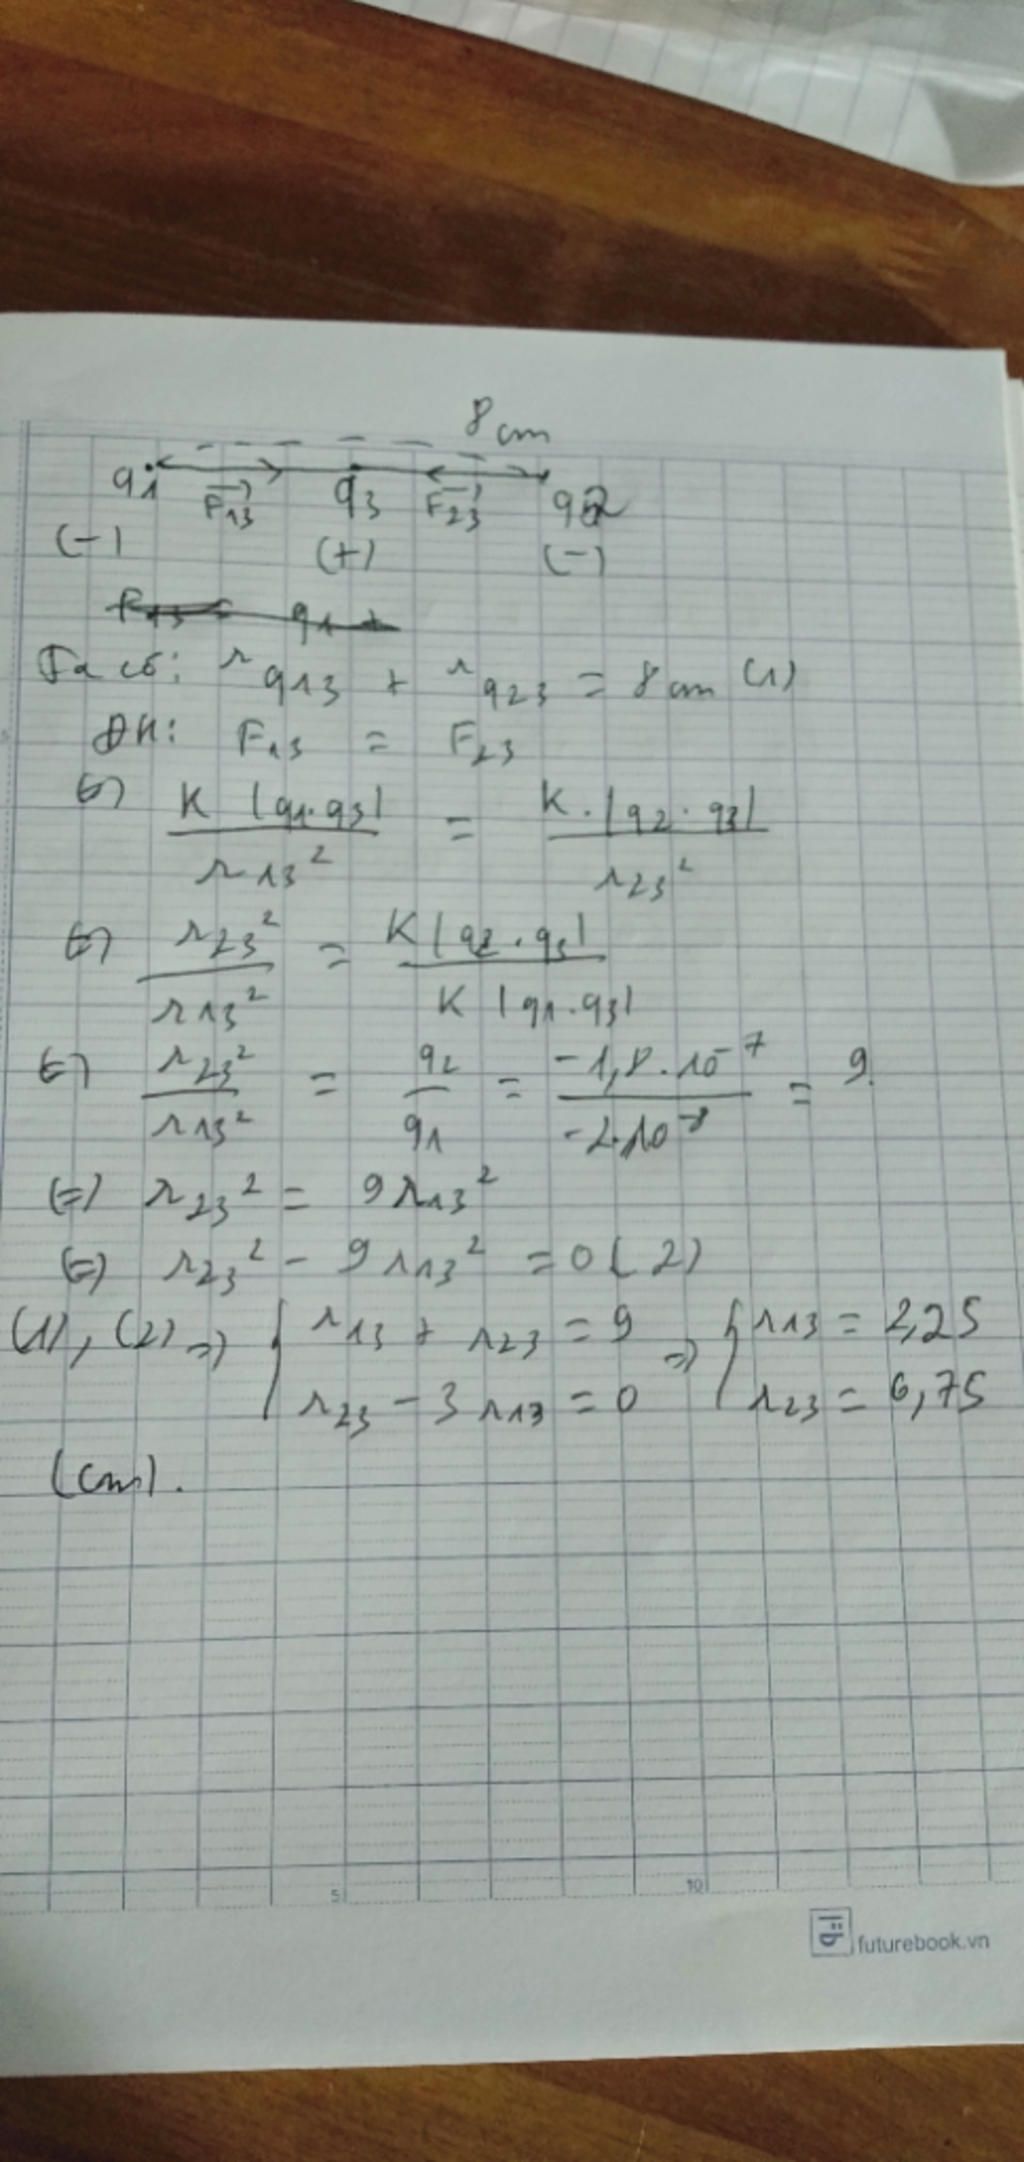 8 cm
q1 F13 q3 F23 q2
(-) (+) (-)
Ta có: r q13 + r q23 = 8 cm (1)
ĐK: F13 = F23
(=) K |q1.q3| / r13² = K.|q2.q3| / r23²
(=) r23² / r13² = K|q2.q3| / K|q1.q3|
(=) r23² / r13² = q2 / q1 = -1,8.10^-7 / -2.10^-8 = 9
(=) r23² = 9r13²
(=) r23² - 9r13² = 0 (2)
(1), (2) => { r13 + r23 = 9 => { r13 = 2,25
r23 - 3r13 = 0 r23 = 6,75
(cm).
5 10
futurebook.vn